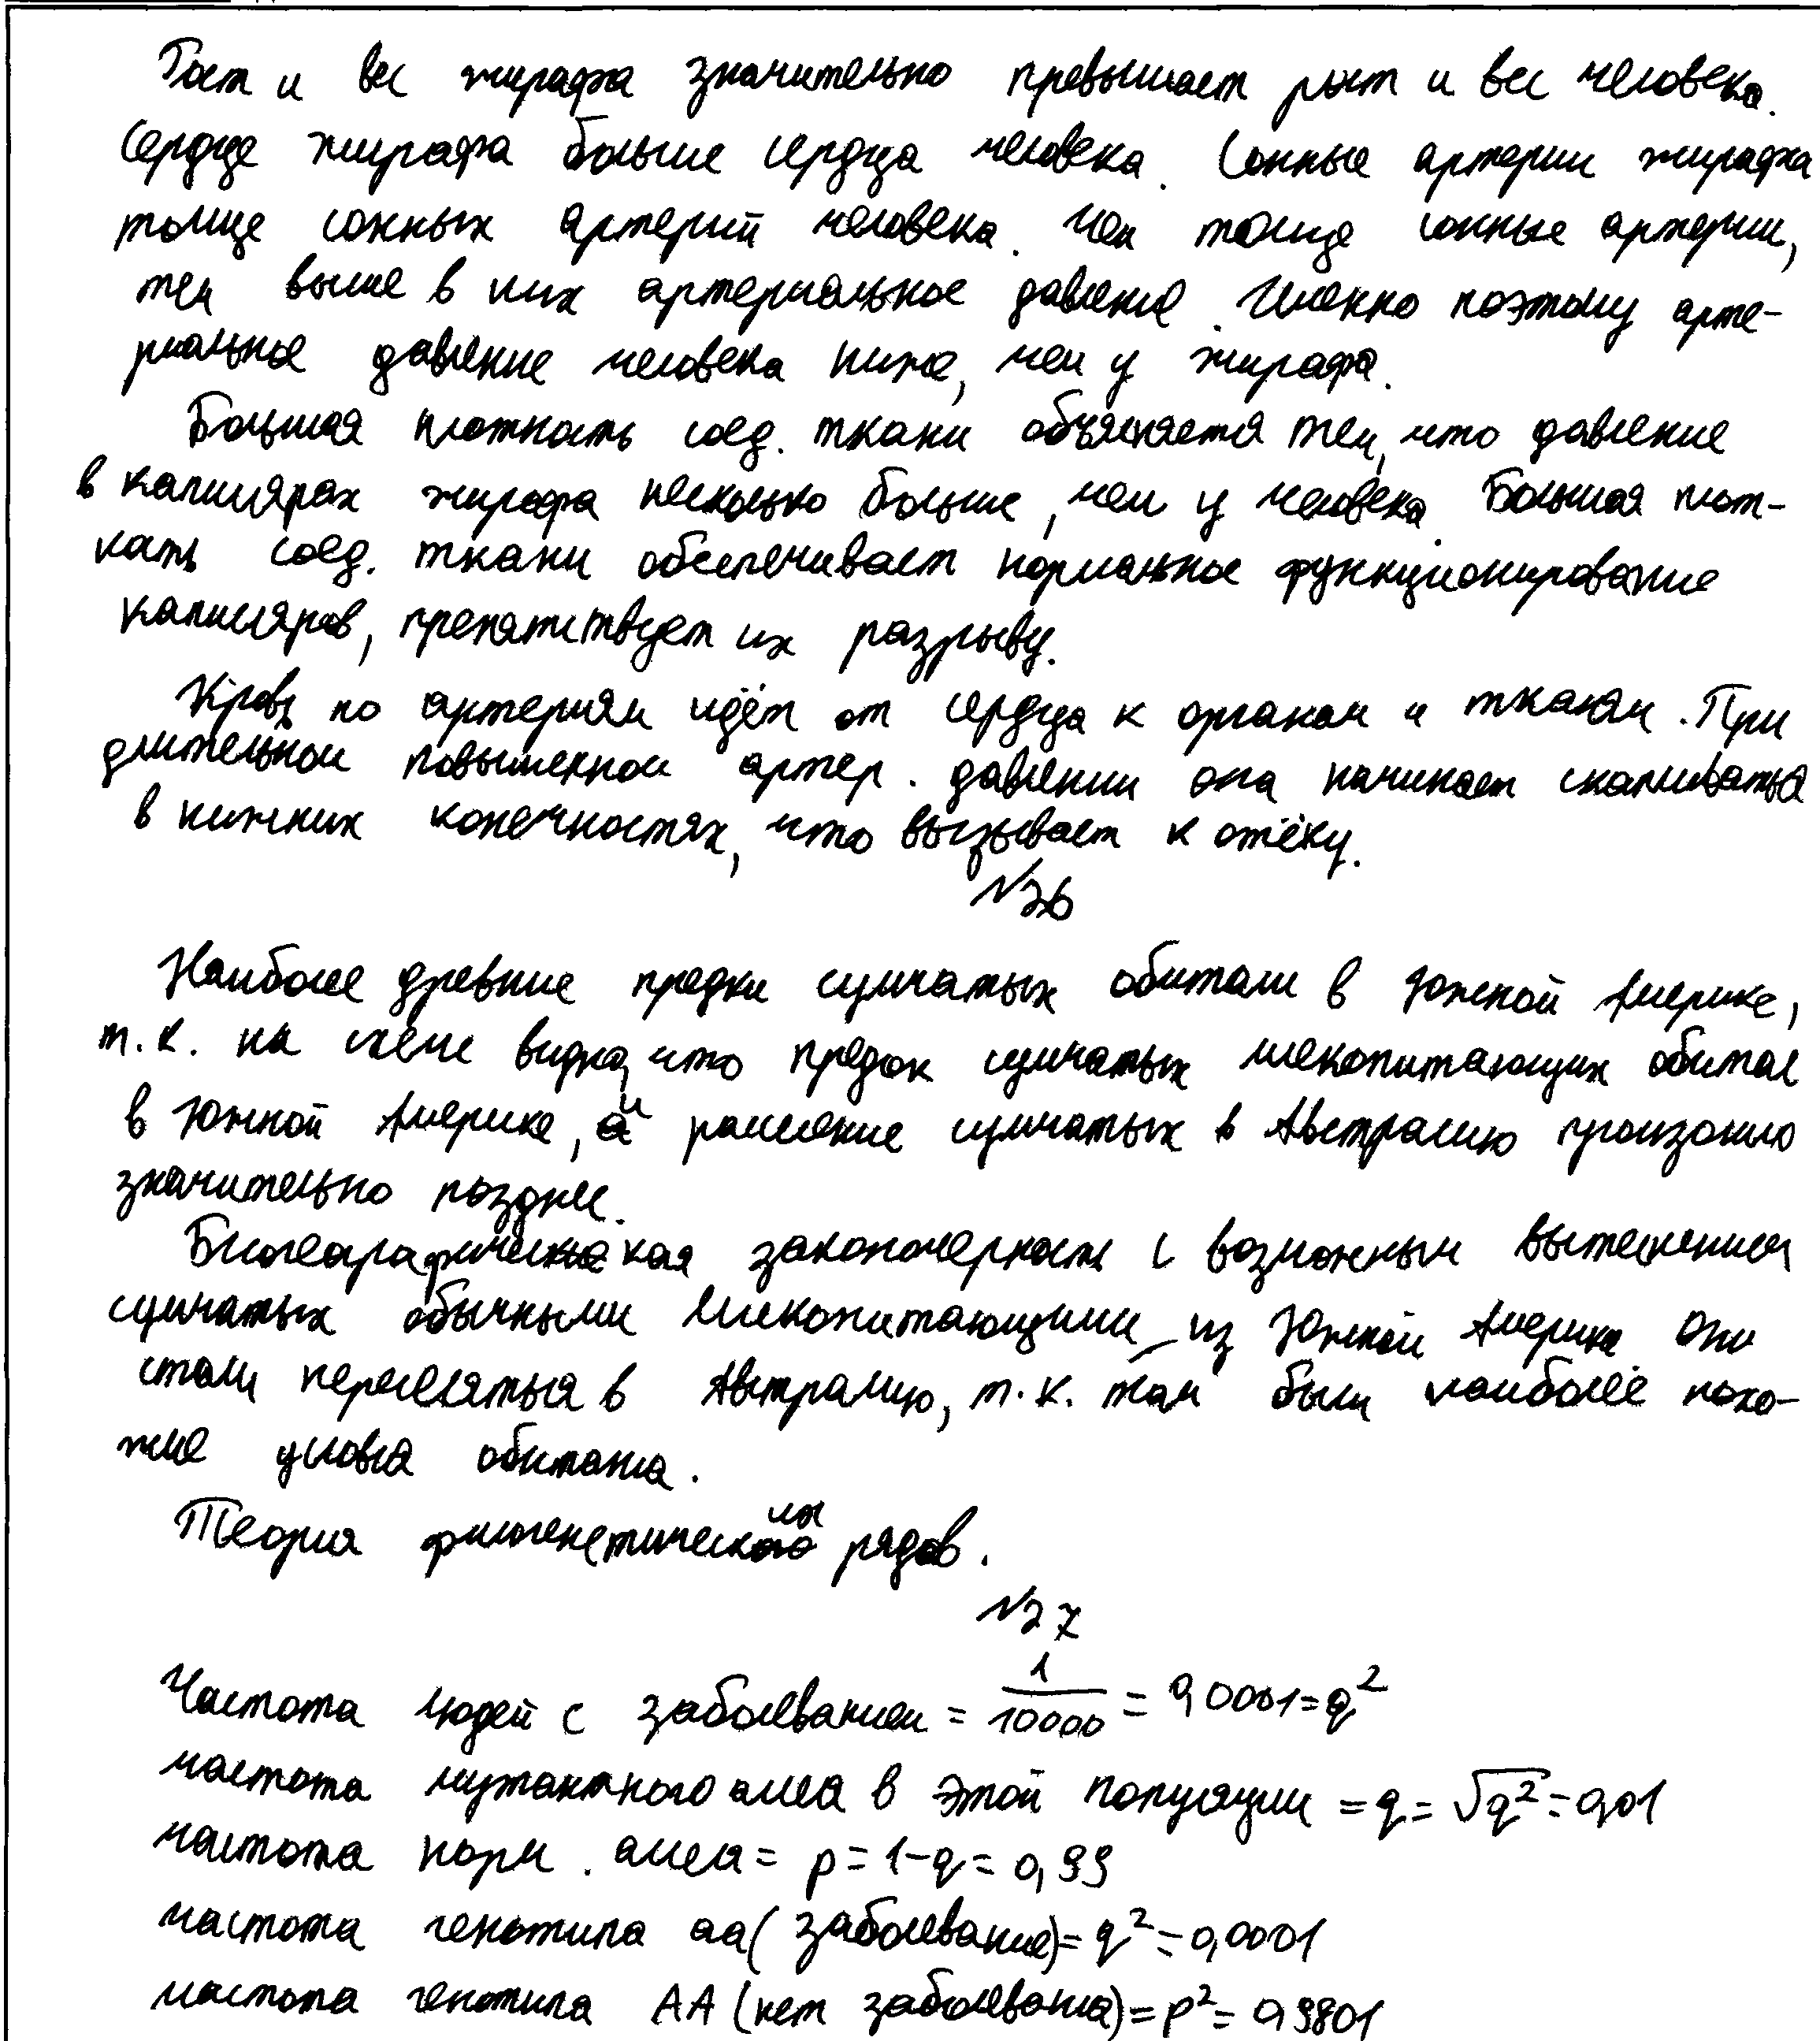 Рост и вес жирафа значительно превышает рост и вес человека.
Сердце жирафа больше сердца человека. Сонные артерии жирафа
толще сонных артерий человека. Чем толще сонные артерии,
тем выше в них артериальное давление. Именно поэтому арте-
риальное давление человека ниже, чем у жирафа.
Большая плотность соед. ткани объясняется тем, что давление
в капиллярах жирафа несколько больше, чем у человека. Большая плот-
ность соед. ткани обеспечивает нормальное функционирование
капилляров, препятствует их разрыву.
Кровь по артериям идёт от сердца к органам и тканям. При
длительном повышенном артер. давлении она начинает скапливаться
в нижних конечностях, что вызывает к отёку.
№26
Наиболее древние предки сумчатых обитали в Южной Америке,
т.к. на схеме видно, что предок сумчатых млекопитающих обитал
в Южной Америке, и расселение сумчатых в Австралию произошло
значительно позднее.
Биогеографическая закономерность с возможным вытеснением
сумчатых обычными млекопитающими из Южной Америки они
стали переселяться в Австралию, т.к. там были наиболее похо-
жие условия обитания.
Теория филогенетических рядов.
№27
Частота людей с заболеванием = 1/10000 = 0,0001 = q²
частота мутантного аллеля в этой популяции = q = √q² = 0,01
частота норм. аллеля = p = 1-q = 0,99
частота генотипа aa (заболевание) = q² = 0,0001
частота генотипа AA (нет заболевания) = p² = 0,9801